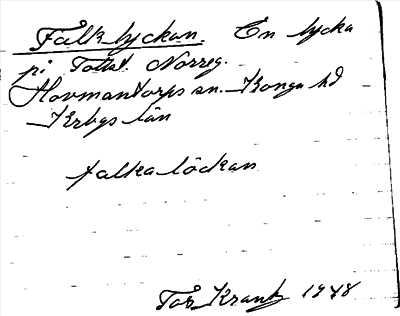 Falklyckan. En lycka
på Tollst. Norreg.
Hovmantorps sn. Konga hd
Krbgs län
falkalöckan
Tor Krantz 1948